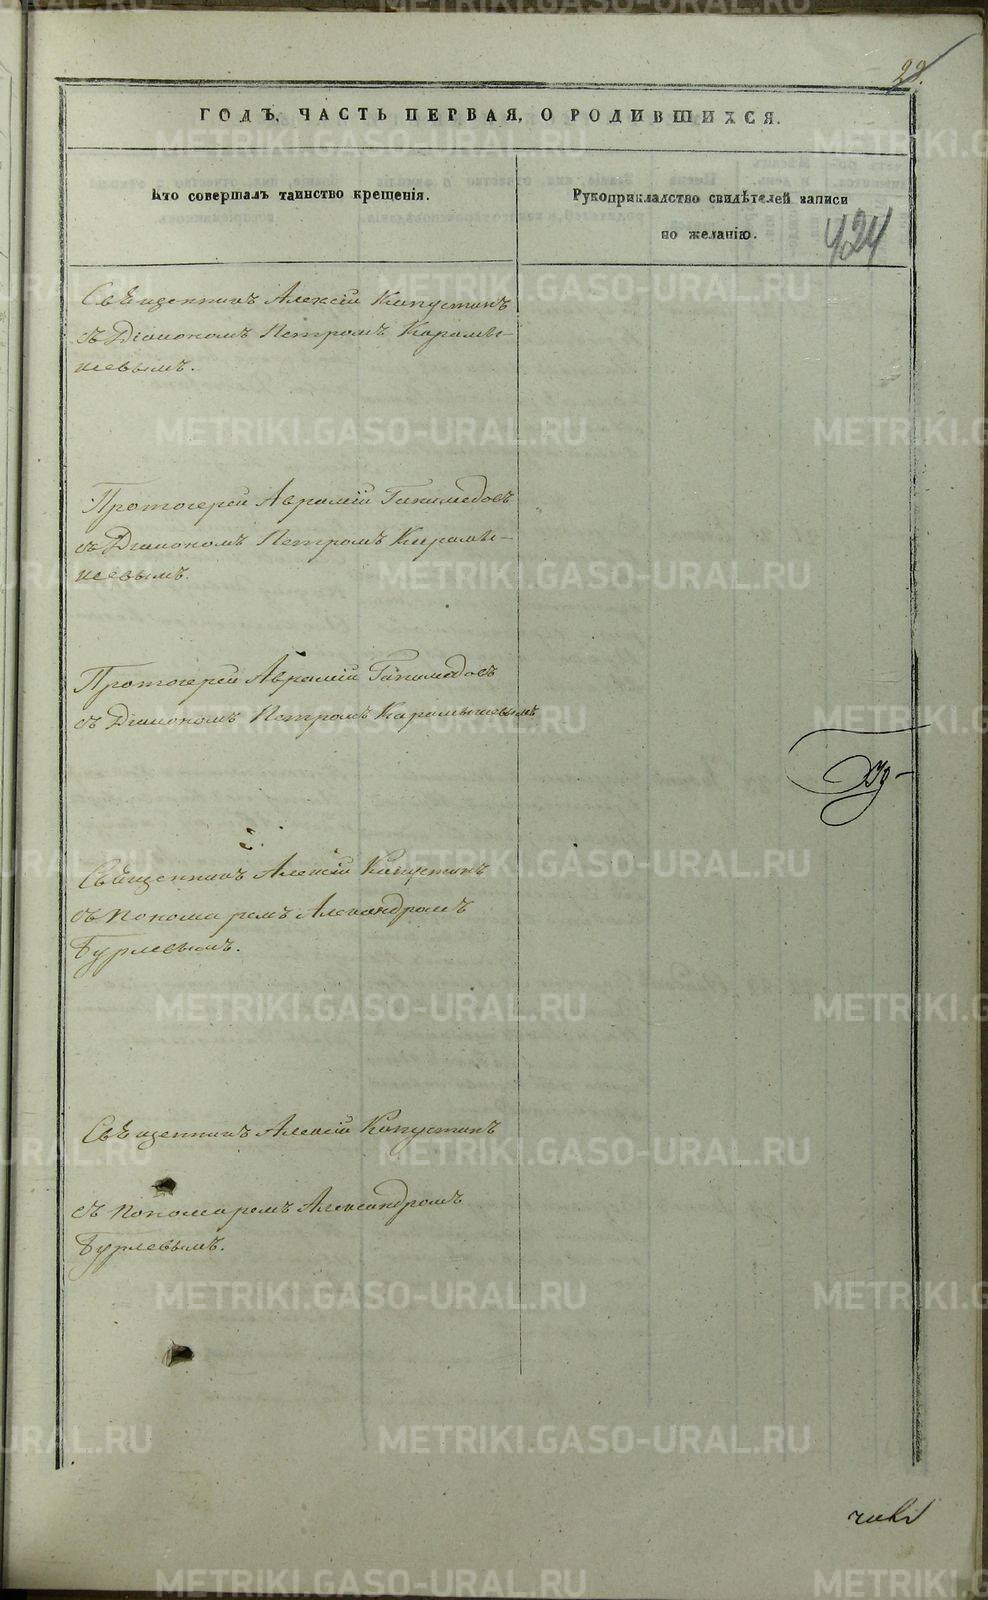 29.
ГОДЪ, ЧАСТЬ ПЕРВАЯ, О РОДИВШИХСЯ.
Кто совершалъ таинство крещенія.
Рукоприкладство свидѣтелей записи
по желанію.
424
Священникъ Алексій Капустинъ
съ Діакономъ Петромъ Карамы-
шевымъ.
Протоіерей Аврамій Ганимедовъ
съ Діакономъ Петромъ Карамы-
шевымъ.
Протоіерей Аврамій Ганимедовъ
съ Діакономъ Петромъ Карамышевымъ
Священникъ Алексій Капустинъ
съ Пономаремъ Александромъ
Бурлевымъ.
Священникъ Алексій Капустинъ
съ Пономаремъ Александромъ
Бурлевымъ.
METRIKI.GASO-URAL.RU